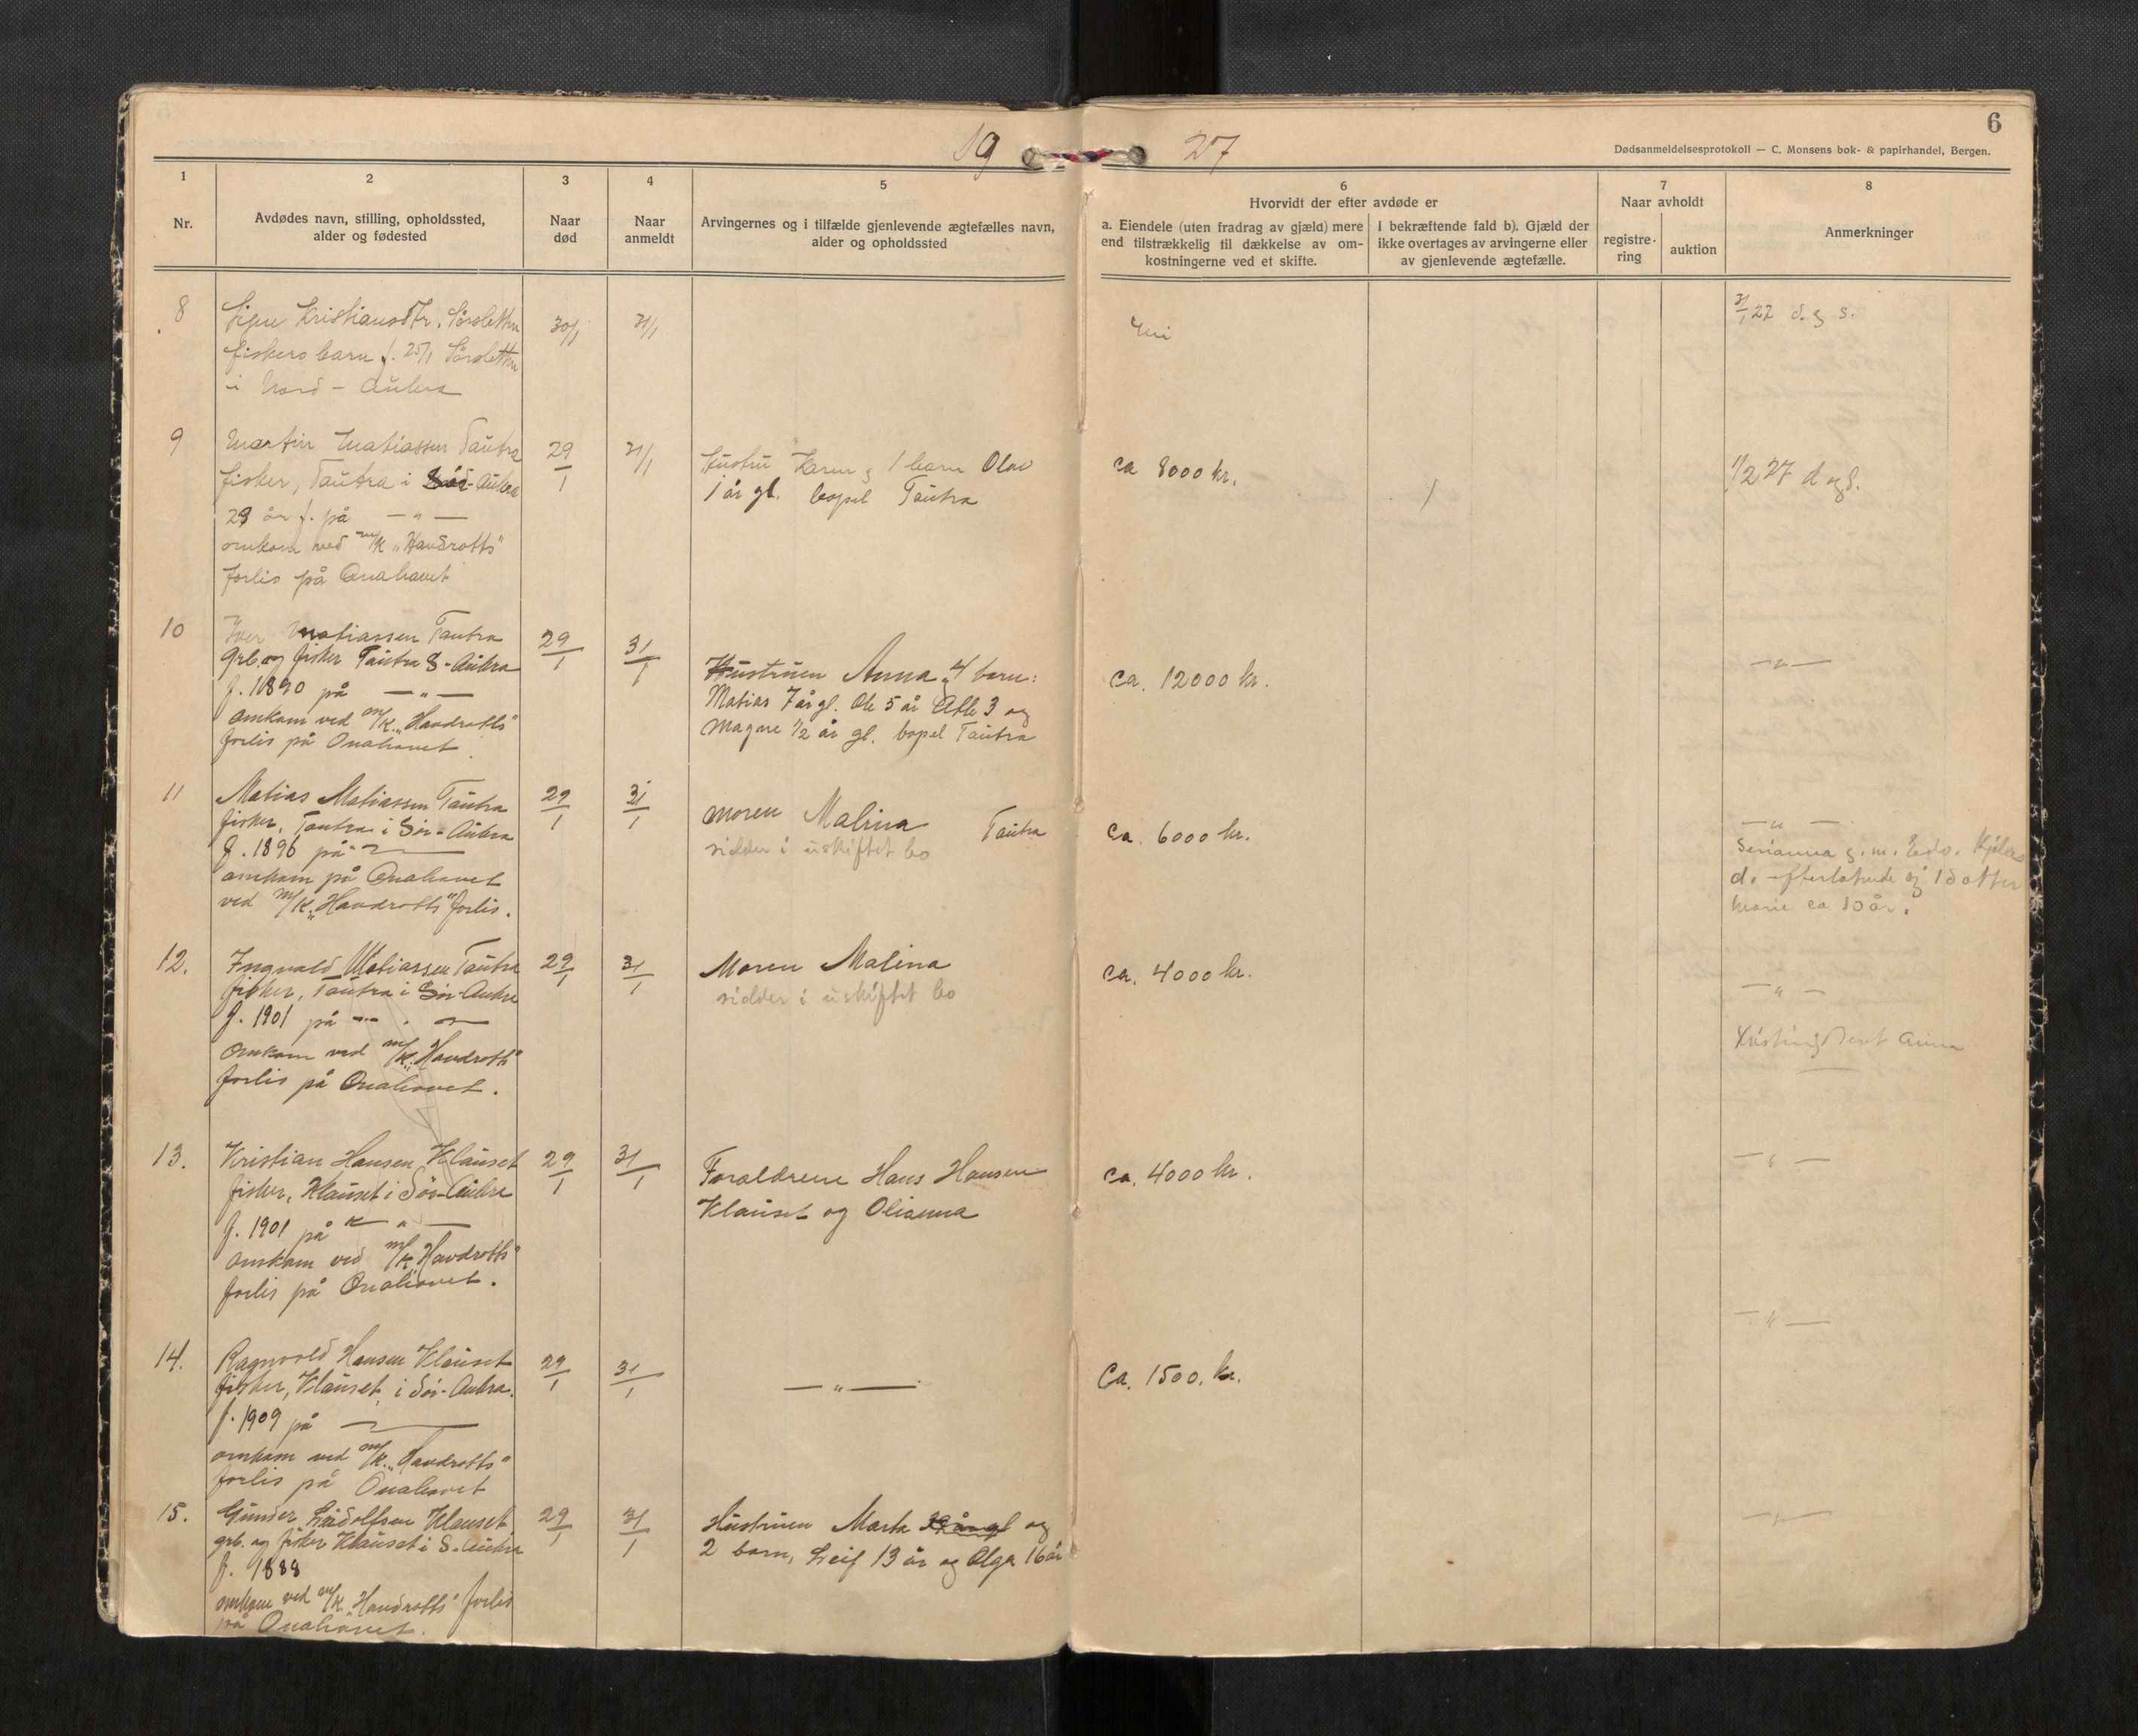 19 27
6
Dødsanmeldelsesprotokoll — C. Monsens bok- & papirhandel, Bergen.
1
Nr.
2
Avdødes navn, stilling, opholdssted,
alder og fødested
3
Naar
død
4
Naar
anmeldt
5
Arvingernes og i tilfælde gjenlevende ægtefælles navn,
alder og opholdssted
6
Hvorvidt der efter avdøde er
a. Eiendele (uten fradrag av gjæld) mere
end tilstrækkelig til dækkelse av om-
kostningerne ved et skifte.
I bekræftende fald b). Gjæld der
ikke overtages av arvingerne eller
av gjenlevende ægtefælle.
7
Naar avholdt
registre-
ring
auktion
8
Anmerkninger
8
Kristiansdtr. Sörsletten
fiskers barn f. 25/1 Sörsletten
i Nord - Aukra
30/1
31/1
31/1 27 d. og s.
9
Martin Matiassen Tautra
fisker, Tautra i Sör-Aukra
29 år f. på — " —
omkom ved m/k „Havdrotts"
forlis på Onahavet
29/1
31/1
Hustru Karen og 1 barn Olav
1 år gl. bopel Tautra
ca 8000 kr.
1/2 27 d og s.
10
Iver Matiassen Tautra
Grb. og fisker Tautra S-Aukra
f. 1890 på — " —
omkom ved m/k. „Havdrotts"
forlis på Onahavet
29/1
31/1
Hustruen Anna og 4 barn:
Matias 7 år gl. Ole 5 år Atle 3 og
Magne 1/2 år gl. bopel Tautra
ca. 12000 kr.
— " —
11
Matias Matiassen Tautra
fisker, Tautra i Sör-Aukra
f. 1896 på — " —
omkom på Onahavet
ved m/k. „Havdrotts" forlis.
29/1
31/1
Moren Malina Tautra
sidder i uskiftet bo
ca. 6000 kr.
— " —
Serianna g. m. Edv.
d. efterlatende sig 1 datter
Marie ca 10 år.
12.
Ingvald Matiassen Tautra
fisker, Tautra i Sör-Aukra
f. 1901 på — " —
Omkom ved m/k. „Havdrotts"
forlis på Onahavet.
29/1
31/1
Moren Malina
sidder i uskiftet bo
ca. 4000 kr.
— " —
Anna
13.
Kristian Hansen Klauset
fisker, Klauset i Sör-Aukra
f. 1901 på — " —
omkom ved m/k. „Havdrotts"
forlis på Onahavet.
29/1
31/1
Foraldrene Hans Hansen
Klauset og Olianna
ca. 4000 kr.
— " —
14.
Ragnvald Hansen Klauset
fisker, Klauset, i Sör-Aukra.
f. 1909 på — " —
omkom ved m/k. „Havdrotts"
forlis på Onahavet
29/1
31/1
— " —
Ca. 1500. kr.
— " —
15.
Gunder Lüdolfsen Klauset
grb. og fisker Klauset i S. Aukra
f. 1888
omkom ved m/k. „Havdrotts" forlis
på Onahavet.
29/1
31/1
Hustruen Marta og
2 barn, Leif 13 år og Olga 16 år
— " —